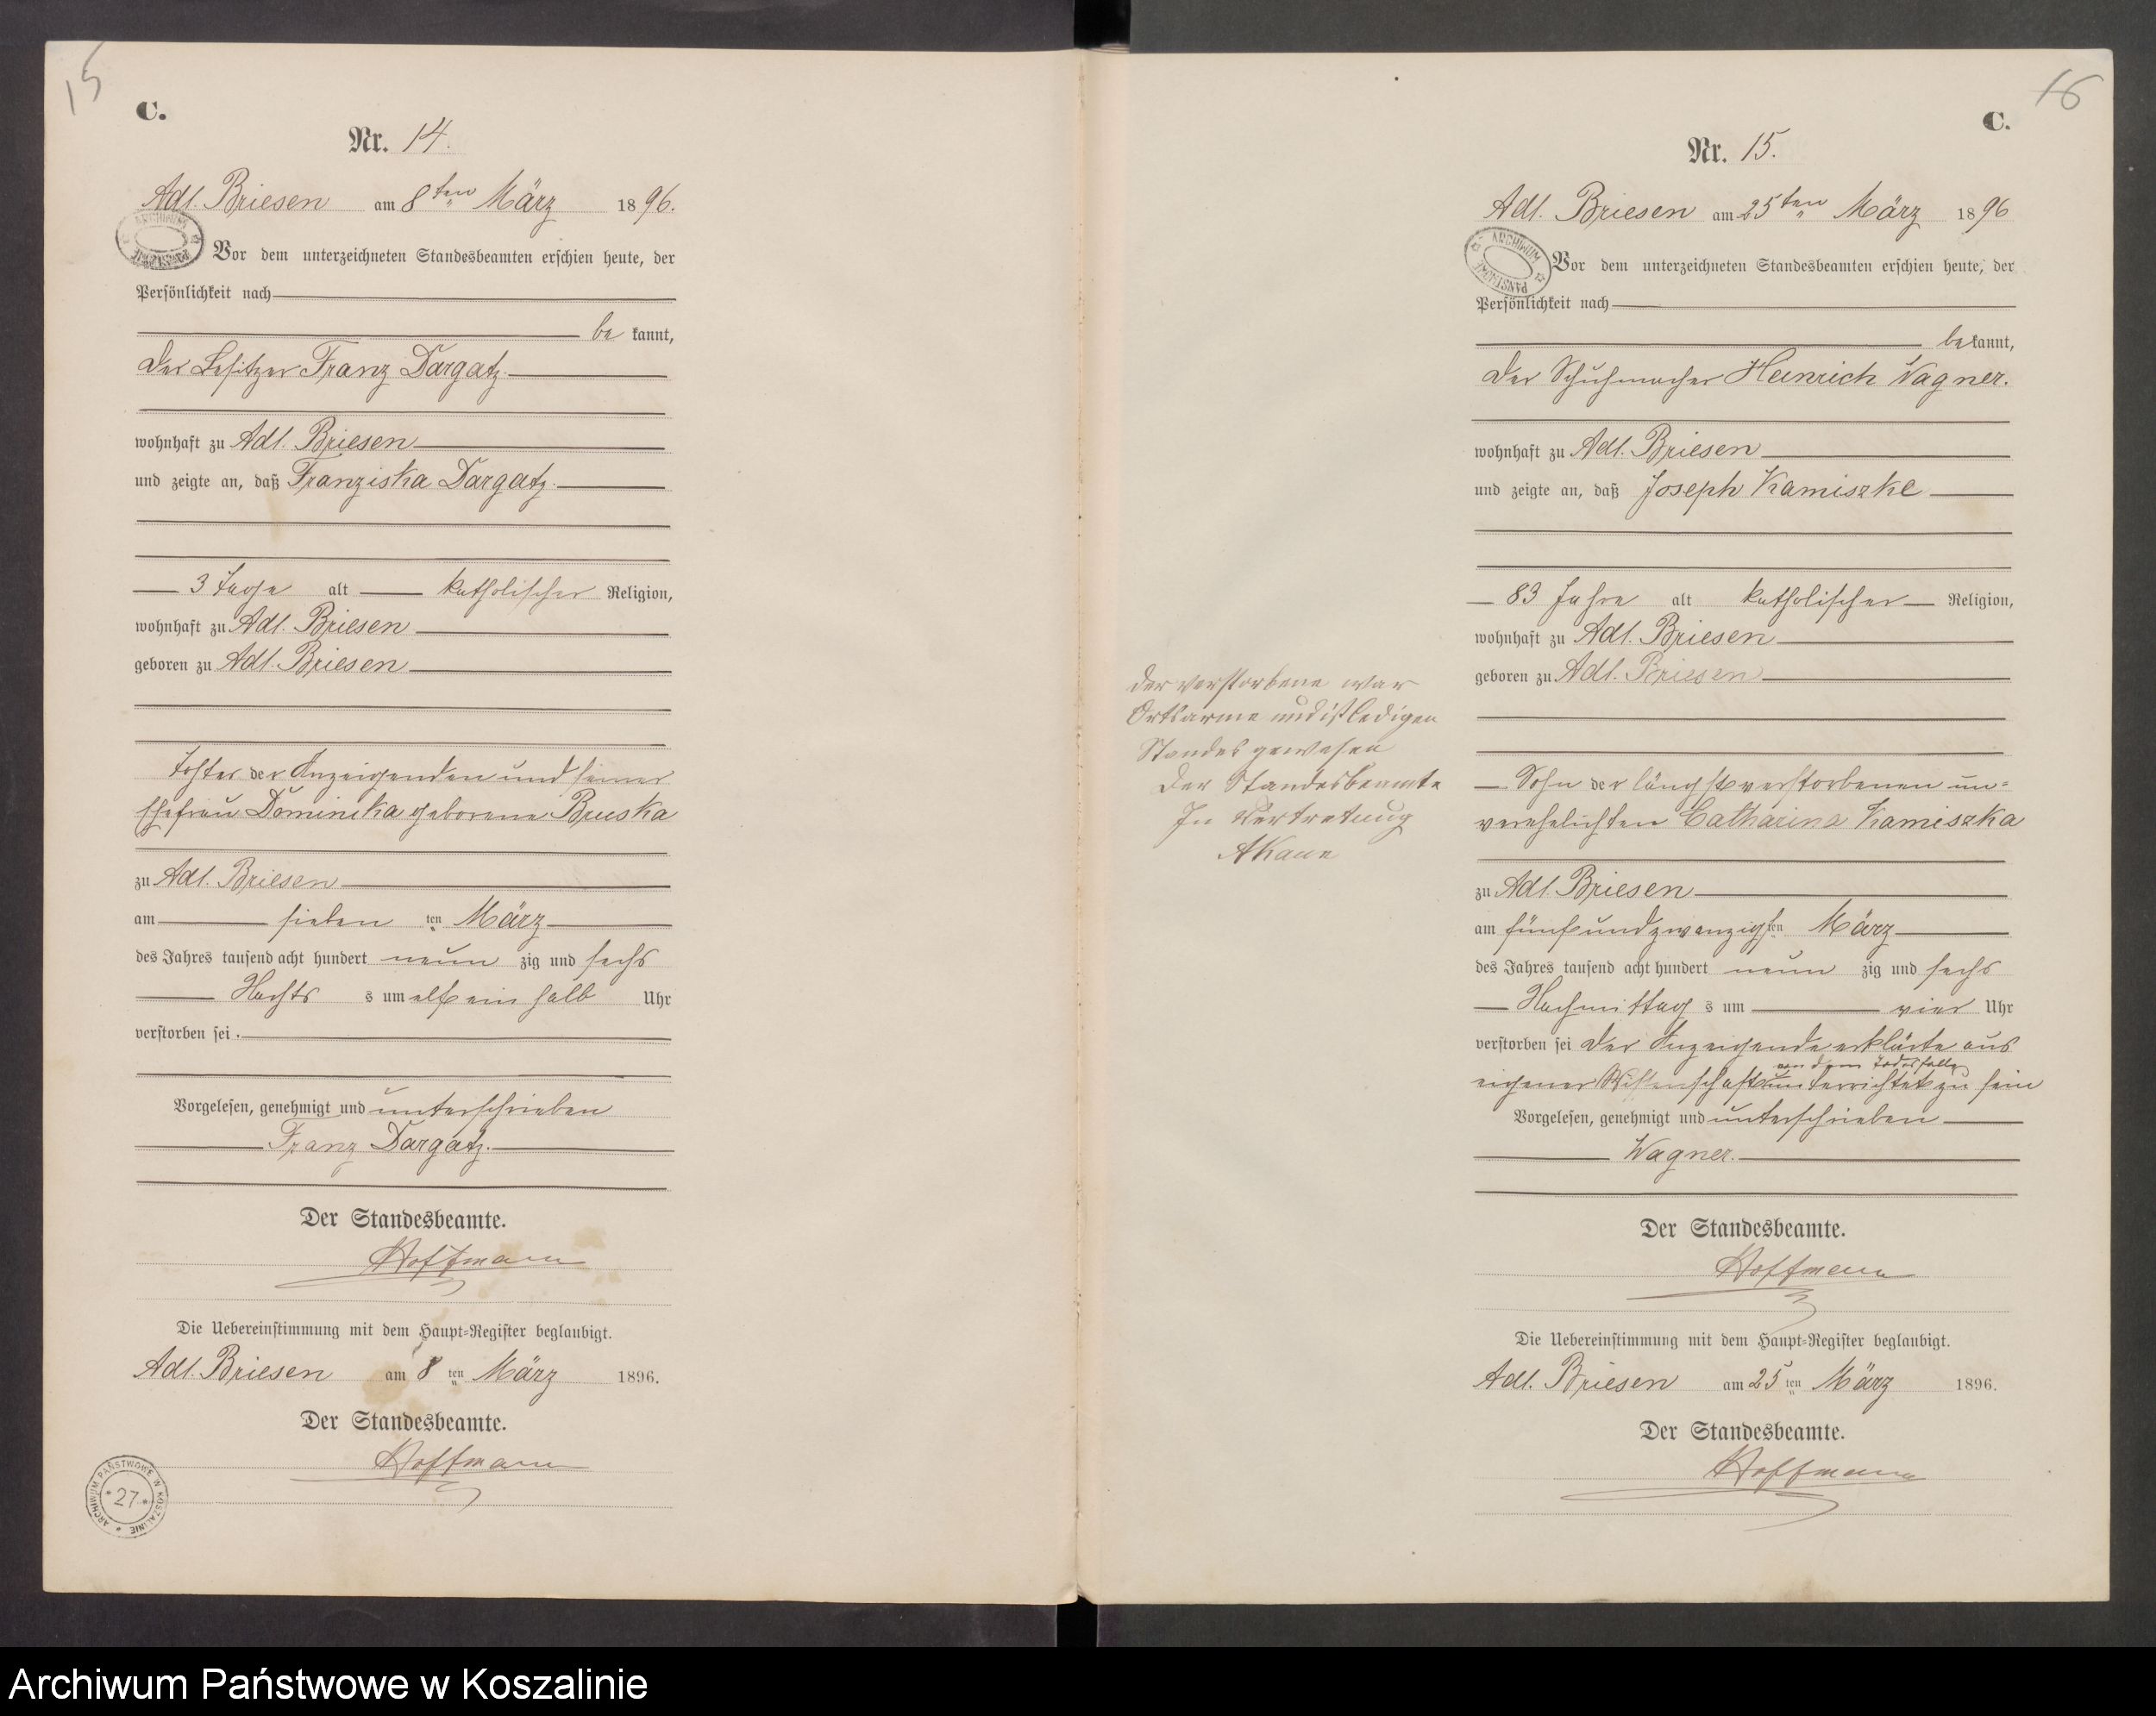 15
C.
Nr. 14.
Adl. Briesen am 8ten März 1896.
ARCHIWUM PAŃSTWOWE
Vor dem unterzeichneten Standesbeamten erschien heute, der
Persönlichkeit nach
be kannt,
der Besitzer Franz Dargatz.
wohnhaft zu Adl. Briesen
und zeigte an, daß Franziska Dargatz.
3 Tage alt katholischer Religion,
wohnhaft zu Adl. Briesen
geboren zu Adl. Briesen
Tochter der Anzeigenden und seiner
Ehefrau Dominika geborene Bruska
zu Adl. Briesen
am sieben ten März
des Jahres tausend acht hundert neun zig und sechs
Nachts s um elf ein halb Uhr
verstorben sei.
Vorgelesen, genehmigt und unterschrieben
Franz Dargatz.
Der Standesbeamte.
Hoffmann
Die Uebereinstimmung mit dem Haupt-Register beglaubigt.
Adl. Briesen am 8 ten März 1896.
Der Standesbeamte.
Hoffmann
ARCHIWUM PAŃSTWOWE W KOSZALINIE
* 27 *
16
C.
Nr. 15.
Adl. Briesen am 25ten März 1896
ARCHIWUM PAŃSTWOWE
Vor dem unterzeichneten Standesbeamten erschien heute, der
Persönlichkeit nach
be kannt,
der Schuhmacher Heinrich Wagner.
wohnhaft zu Adl. Briesen
und zeigte an, daß Joseph Kamiszke
83 Jahre alt katholischer Religion,
wohnhaft zu Adl. Briesen
geboren zu Adl. Briesen
Sohn der längst verstorbenen un-
verehelichten Catharina Kamiszka
zu Adl. Briesen
am fünfundzwanzigsten März
des Jahres tausend acht hundert neun zig und sechs
Nachmittag s um vier Uhr
verstorben sei der Anzeigende erklärte aus
von dem Todesfalle
eigener Wissenschaft unterrichtet zu sein
Vorgelesen, genehmigt und unterschrieben
Wagner.
Der Standesbeamte.
Hoffmann
Die Uebereinstimmung mit dem Haupt-Register beglaubigt.
Adl. Briesen am 25 ten März 1896.
Der Standesbeamte.
Hoffmann
der verstorbene war
Ortsarme und ist ledigen
Standes gewesen
Der Standesbeamte
In Vertretung
Archiwum Państwowe w Koszalinie